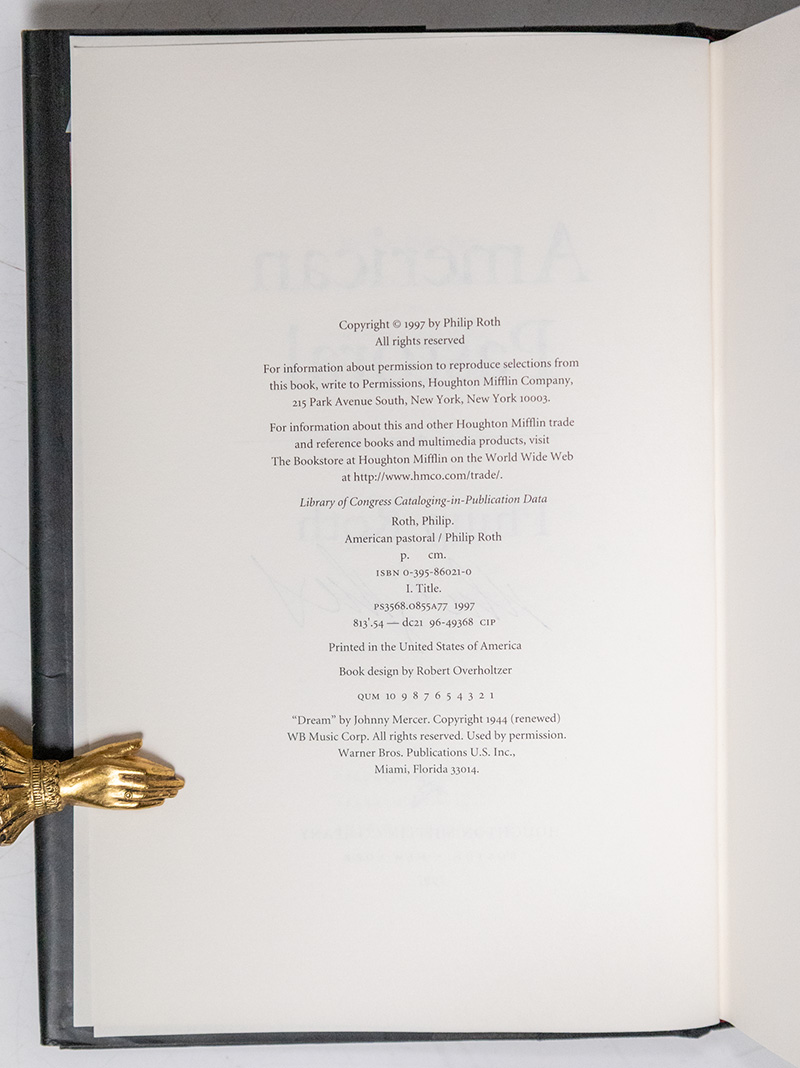 Copyright © 1997 by Philip Roth
All rights reserved
For information about permission to reproduce selections from
this book, write to Permissions, Houghton Mifflin Company,
215 Park Avenue South, New York, New York 10003.
For information about this and other Houghton Mifflin trade
and reference books and multimedia products, visit
The Bookstore at Houghton Mifflin on the World Wide Web
at http://www.hmco.com/trade/.
Library of Congress Cataloging-in-Publication Data
Roth, Philip.
American pastoral / Philip Roth
p. cm.
ISBN 0-395-86021-0
I. Title.
PS3568.0855A77 1997
813'.54 — dc21 96-49368 CIP
Printed in the United States of America
Book design by Robert Overholtzer
QUM 10 9 8 7 6 5 4 3 2 1
“Dream” by Johnny Mercer. Copyright 1944 (renewed)
WB Music Corp. All rights reserved. Used by permission.
Warner Bros. Publications U.S. Inc.,
Miami, Florida 33014.